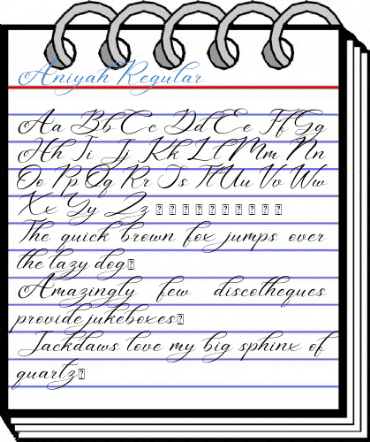 Aniyah Regular
Aa Bb Cc Dd Ee Ff Gg
Hh Ii Jj Kk Ll Mm Nn
Oo Pp Qq Rr Ss Tt Uu Vv Ww
Xx Yy Zz
The quick brown fox jumps over
the lazy dog
Amazingly few discotheques
provide jukeboxes
Jackdaws love my big sphinx of
quartz